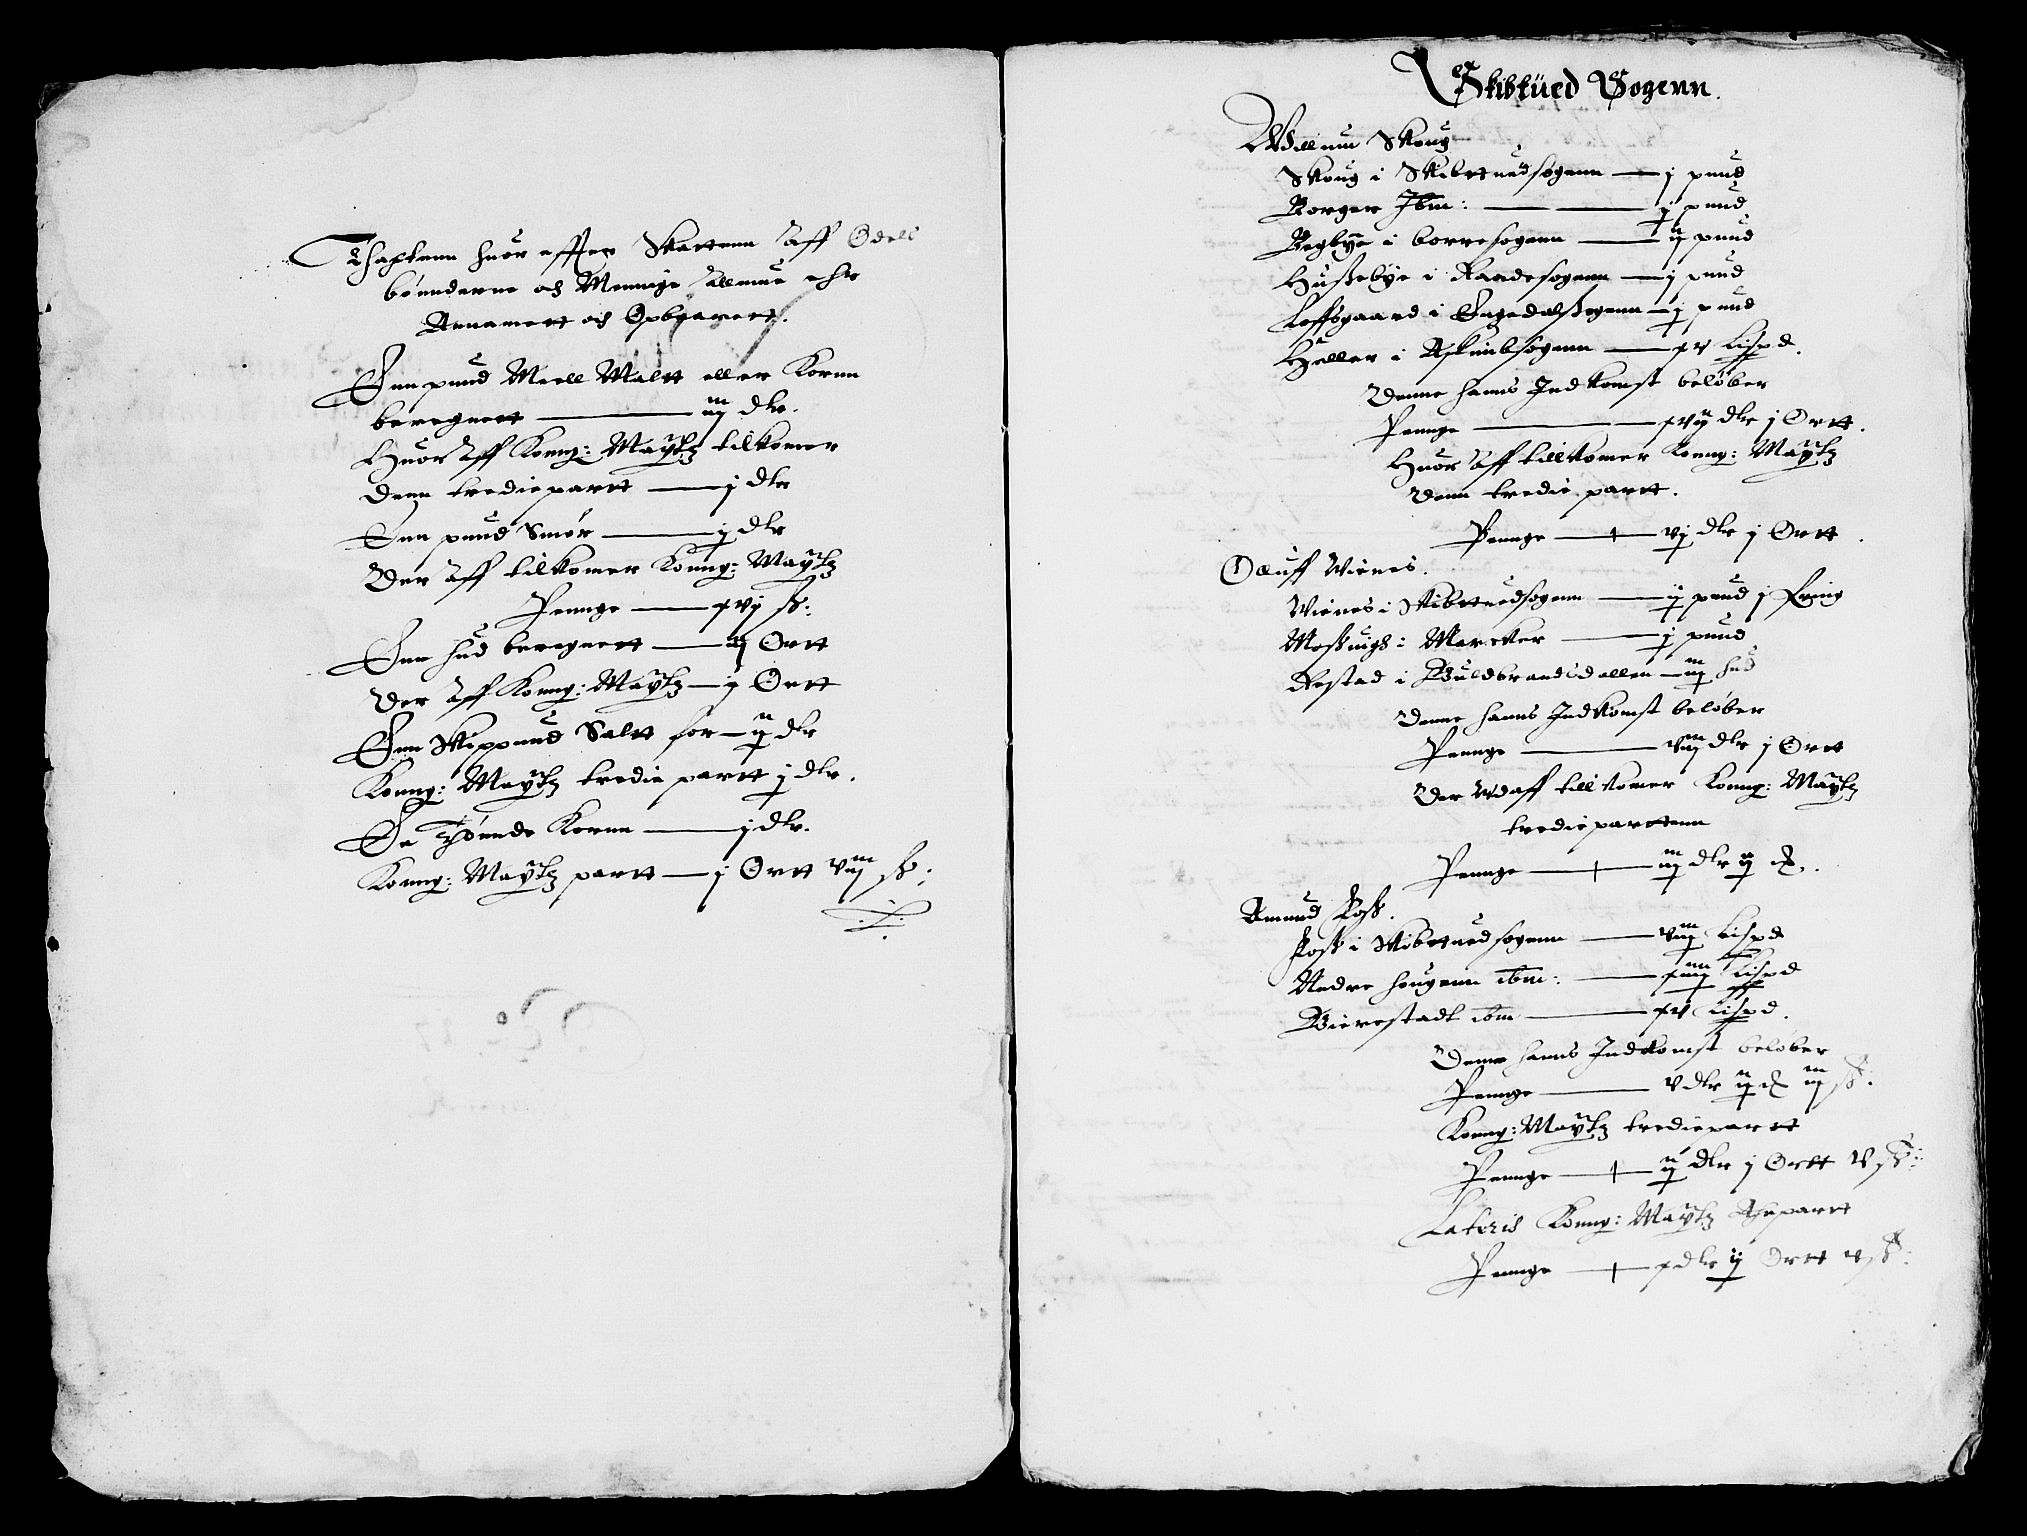 Thaxtenn huor effter Skattenn aff Odell
bønnderne och Mennige Allmue ehr
Annamett och Opbaarett.
Enn pund Meell Maltt eller Kornn
beregnett — iij dlr.
Huor aff Konng: Maytz tilkomer
denn tredie partt — j dlr
Enn pund Smør — j dlr
Der aff tilkomer Konng: Maytz
Pennge — xvj ſs:
Enn hud beregnett — iij Ortt
Der aff Konng: Maytz — j Ortt
Enn Skippund Saltt for — iij dlr
Konng: Maytz tredie partt j dlr.
En Tønnde Kornn — j dlr.
Konng: Maytz partt — j Ortt viij ſs:
Skibtued Sogenn.
Willum Skoug
Skoug i Skibttuedsogenn — j pund
Borger Ibm: — j pund
Begbye i borresogenn — ij pund
Hussebye i Raadesogenn — j pund
Loffsgaard i Engedalssogenn — j pund
Haller i Askimbsogenn — xv Lispd.
Denne hanns Indkomst beløber
Pennge — xvij dlr j Ortt.
Huor aff tillkomer Konng: Maytz
denn tredie partt.
Pennge — vj dlr j Ortt.
Oluff Wienes.
Wienes i Skibttuedsogenn — ij pund j fring
Mossuigh i Marcker — j pund
Restad i Guldbrandsdallen — iij hud
Denne hanns Indkomst beløber
Pennge — viij dlr j Ortt
Der udaff tillkomer Konng: Maytz
tredieparttenn
Pennge — iij dlr
Amund
i Skibttuedsogenn — viij Lispd
Nedre hougenn ibm: — xiiij Lispd
Bierestadt ibm — xv Lispd.
Denne hanns Indkomst beløber
Pennge — v dlr ij iij ſs:
Konng: Maytz trediepartt
Pennge — ij dlr j Ortt v ſs:
Lateris Konng: Maytz Anpartt
Pennge — x dlr ij Ortt v ſs: